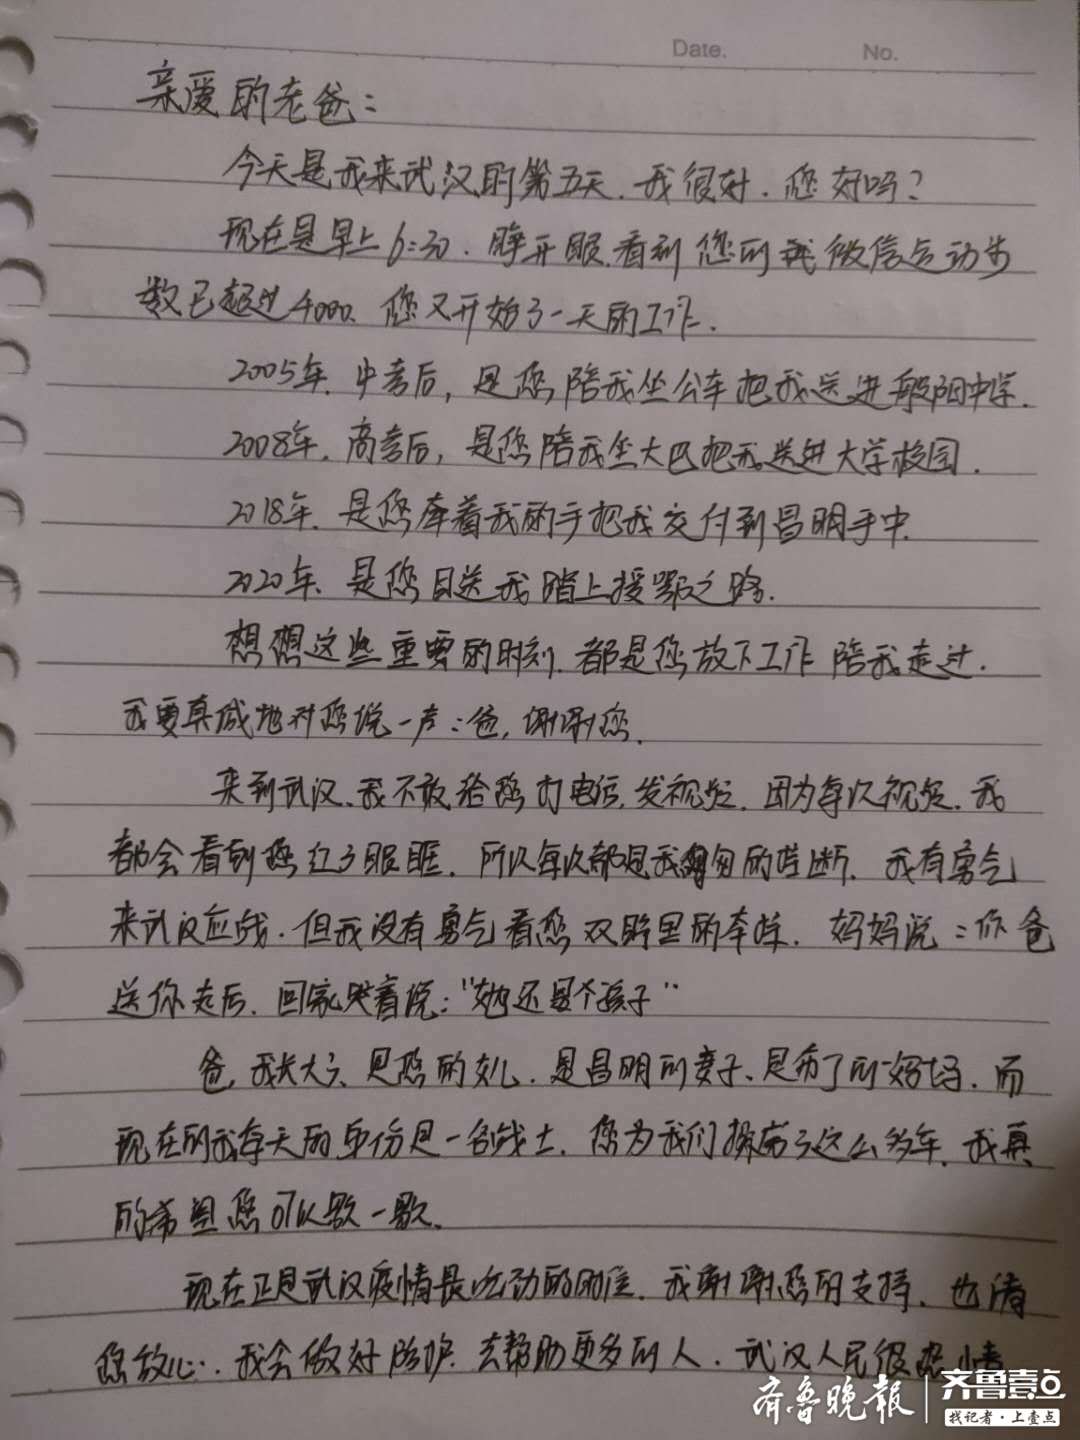 Date. No.
亲爱的老爸：
今天是我来武汉的第五天.我很好.您好吗？
现在是早上6:30.睁开眼.看到您的微信运动步
数已超过4000、您又开始了一天的工作.
2005年.中考后，是您陪我坐公车把我送进般阳中学.
2008年.高考后，是您陪我坐大巴把我送进大学校园.
2018年.是您牵着我的手把我交付到昌明手中.
2020年、是您目送我踏上援鄂之路.
想想这些重要的时刻.都是您放下工作陪我走过.
我要真诚地对您说一声：爸，谢谢您.
来到武汉、我不敢给您打电话.发视频.因为每次视频.我
都会看到您红了眼眶.所以每次都是我匆匆的挂断.我有勇气
来武汉应战.但我没有勇气看您双眸里的牵挂.妈妈说：你爸
送你走后.回家哭着说："她还是个孩子"
爸，我长大了、是您的女儿.是昌明的妻子、是布丁的妈妈.而
现在的我每天的身份是一名战士.您为我们操劳了这么多年.我真
的希望您可以歇一歇.
现在正是武汉疫情最吃劲的时候.我谢谢您的支持、也请
您放心.我会做好防护.去帮助更多的人.武汉人民很热情
齐鲁晚报 齐鲁壹点
找记者·上壹点